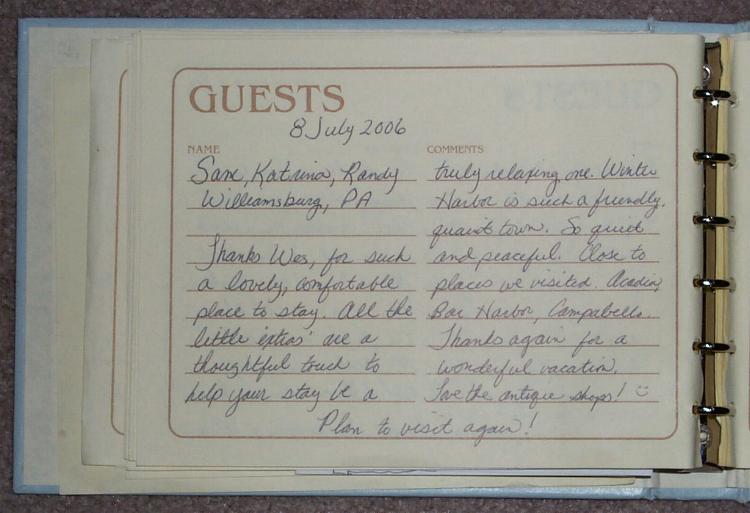 GUESTS
8 July 2006
NAME
Sam, Katrina, Randy
Williamsburg, PA
Thanks Wes, for such
a lovely, comfortable
place to stay. All the
little "extras" are a
thoughtful touch to
help your stay be a
COMMENTS
truly relaxing one. Winter
Harbor is such a friendly,
quaint town. So quiet
and peaceful. Close to
places we visited. Acadia,
Bar Harbor, Campabello.
Thanks again for a
wonderful vacation.
Love the antique shops! ☺
Plan to visit again!